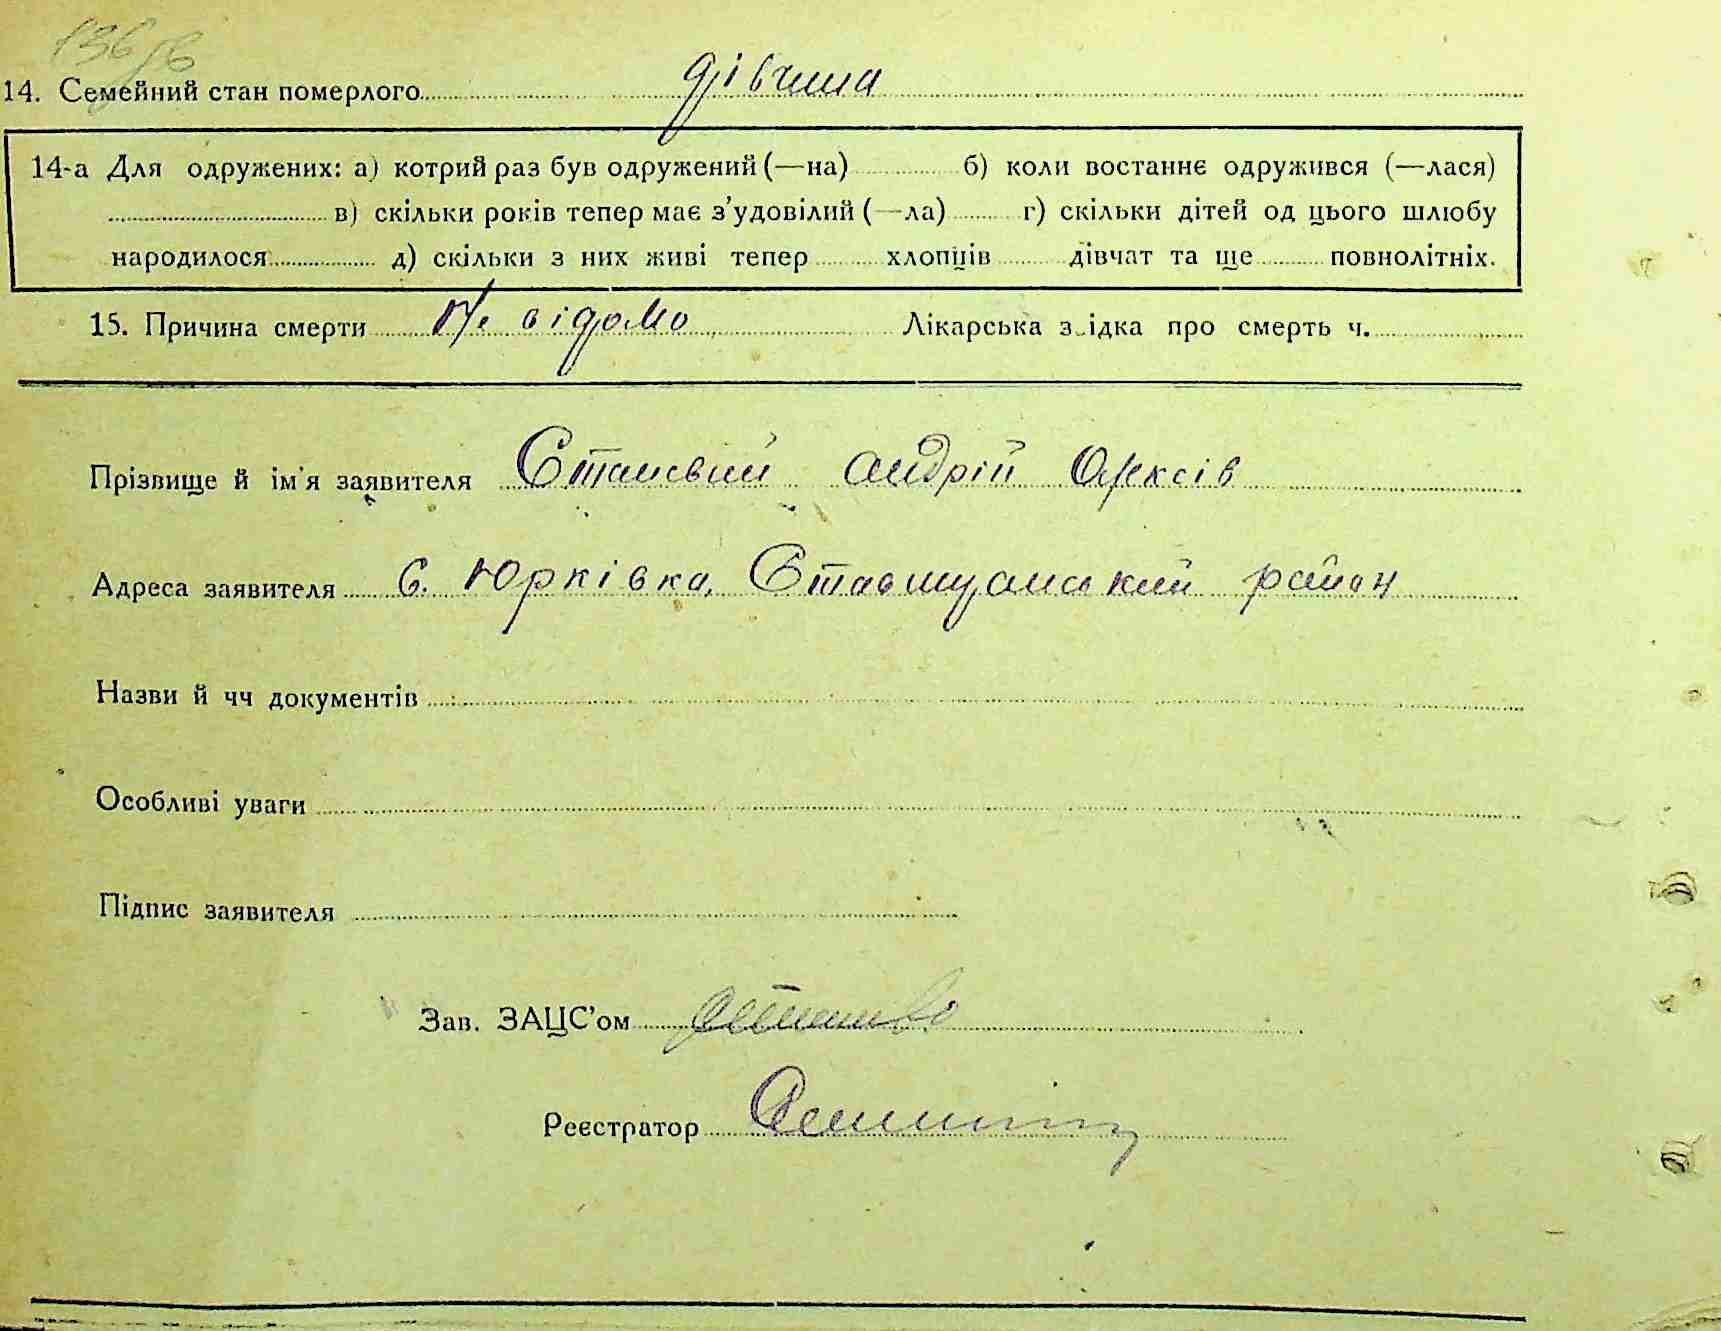 136 зв
14. Семейний стан померлого дівчина
14-а Для одружених: а) котрий раз був одружений (—на) б) коли востаннє одружився (—лася)
в) скільки років тепер має з'удовілий (—ла) г) скільки дітей од цього шлюбу
народилося д) скільки з них живі тепер хлопців дівчат та ще повнолітніх.
15. Причина смерти Не відомо Лікарська з ідка про смерть ч.
Прізвище й ім'я заявителя Андрій
Адреса заявителя с. Юрківка, район
Назви й чч документів
Особливі уваги
Підпис заявителя
Зав. ЗАЦС'ом
Реєстратор